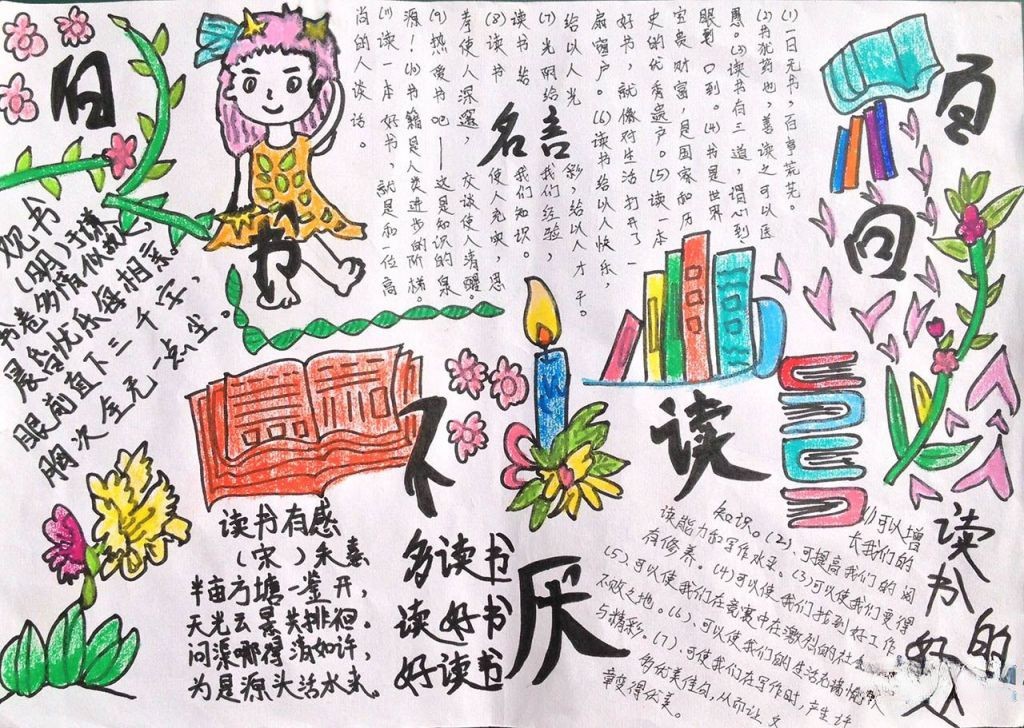 旧
书
不
厌
百
回
读
名言
(1)一日无书，百事荒芜。
(2)书犹药也，善读之可以医
愚。(3)读书有三道，谓心到
眼到 口到。(4)书是世界
宝贵财富，是国家和历
史的优秀遗产。(5)读一本
好书，就像对生活打开了一
扇窗户。(6)读书给以人快乐，
给以人光 彩，给以人才 干。
(7)光阴给 我们经验，
读书给 我们知识。
(8)读书 使人充实，思
考使人深邃，交谈使人清醒。
(9)热爱书吧——这是知识的泉
源！(10)书籍是人类进步的阶梯。
(11)读一本好书，就是和一位高
尚的人谈话。
观书
(明)于谦
书卷多情似故人，
晨昏忧乐每相亲。
眼前直下三千字，
胸次全无一点尘。
读书有感
(宋)朱熹
半亩方塘一鉴开，
天光云景共排徊。
问渠哪得清如许，
为是源头活水来。
多读书
读好书
好读书
读书的好
(1)可以增
长我们的
知识。(2)、可提高我们的阅
读能力和写作水平。(3)可以使我们变得
有修养。(4)可以使我们找到好工作。
(5)、可以使我们在竞赛中在激烈的社会
不败之地。(6)、可以使我们的生活充满愉
与精彩。(7)、可使我们在写作时，产生许
多优美佳句，从而让文
章变得优美。